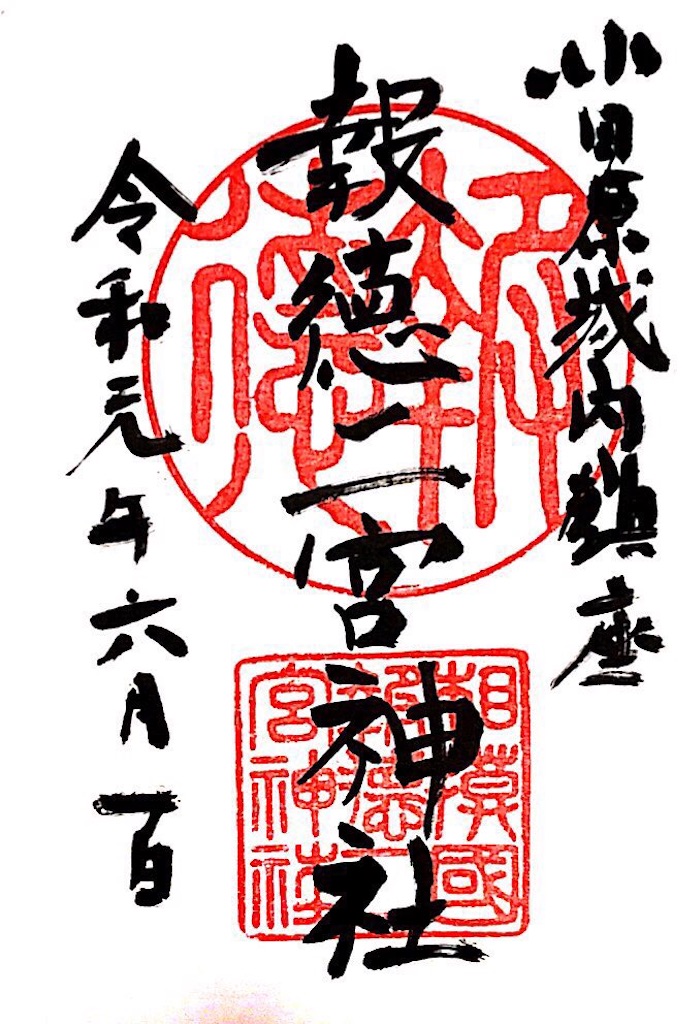 小田原城内鎮座
報徳二宮神社
令和元年六月一日
報徳
相模國
報徳二
宮神社